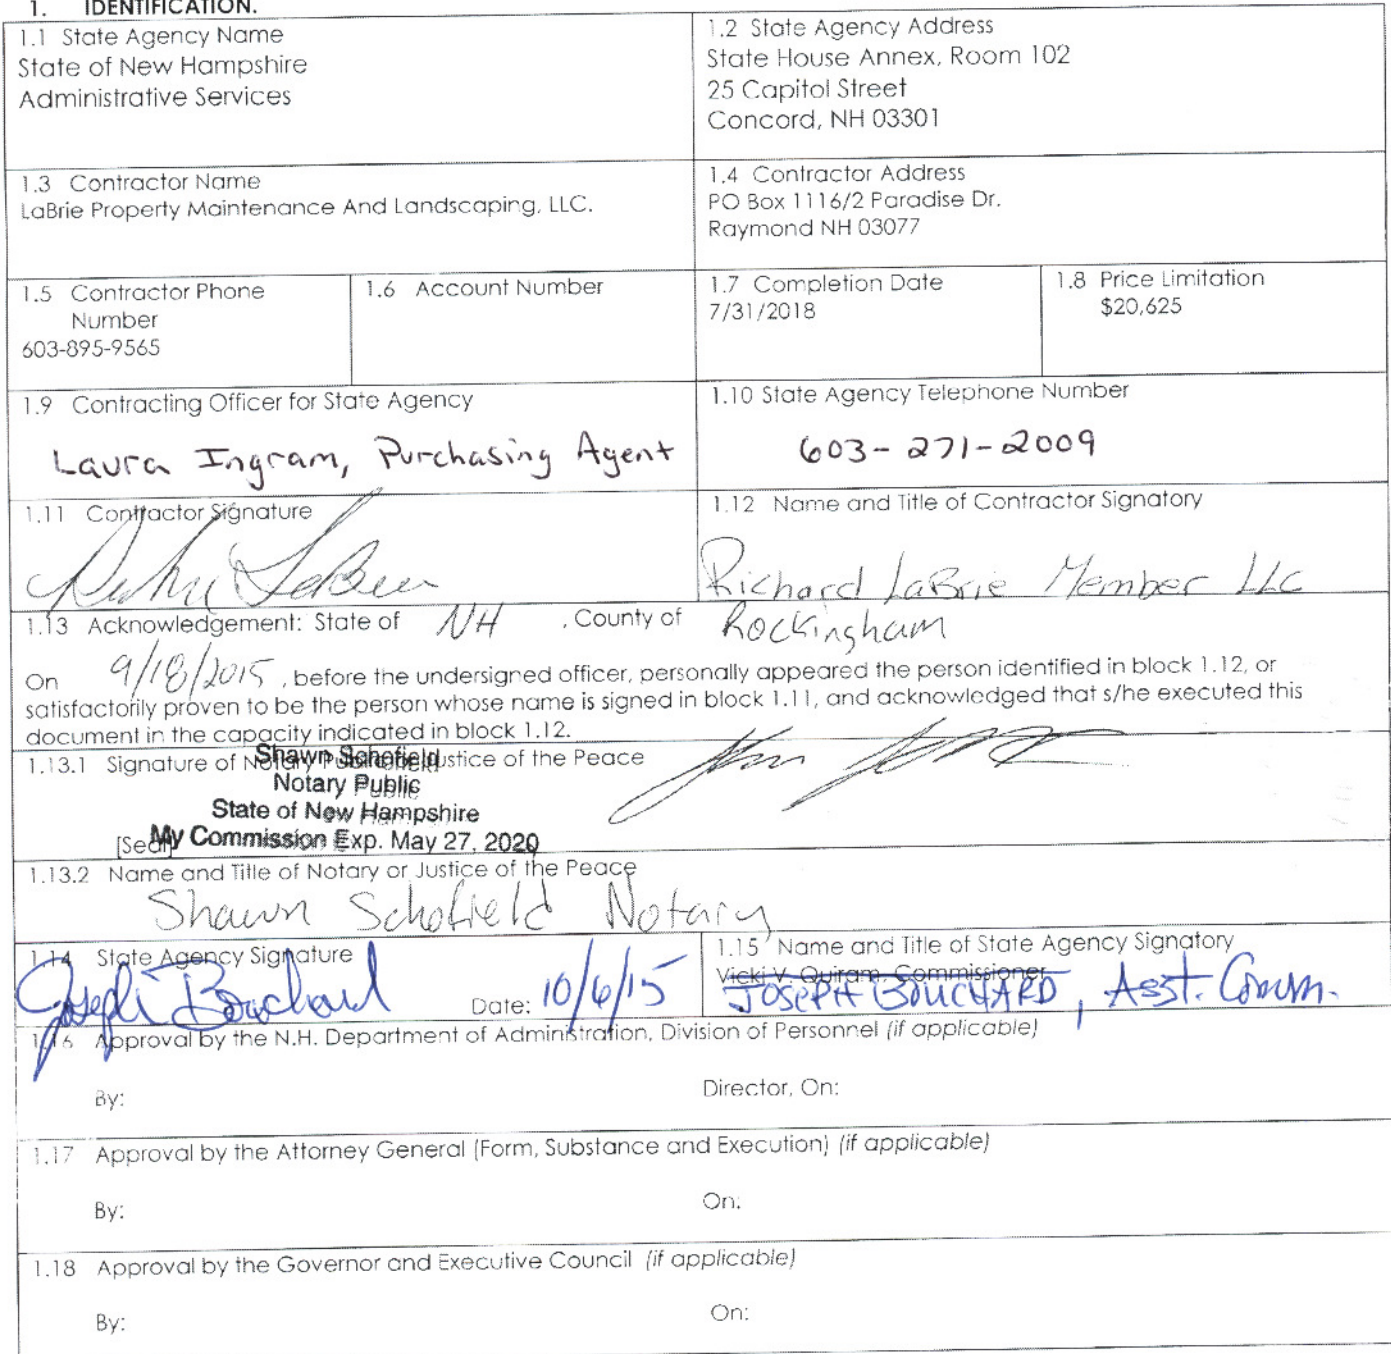 1. IDENTIFICATION.
1.1 State Agency Name
State of New Hampshire
Administrative Services
1.2 State Agency Address
State House Annex, Room 102
25 Capitol Street
Concord, NH 03301
1.3 Contractor Name
LaBrie Property Maintenance And Landscaping, LLC.
1.4 Contractor Address
PO Box 1116/2 Paradise Dr.
Raymond NH 03077
1.5 Contractor Phone
Number
603-895-9565
1.6 Account Number
1.7 Completion Date
7/31/2018
1.8 Price Limitation
$20,625
1.9 Contracting Officer for State Agency
Laura Ingram, Purchasing Agent
1.10 State Agency Telephone Number
603-271-2009
1.11 Contractor Signature
1.12 Name and Title of Contractor Signatory
Richard LaBrie Member LLC
1.13 Acknowledgement: State of NH , County of Rockingham
On 9/18/2015, before the undersigned officer, personally appeared the person identified in block 1.12, or
satisfactorily proven to be the person whose name is signed in block 1.11, and acknowledged that s/he executed this
document in the capacity indicated in block 1.12.
1.13.1 Signature of Notary Public or Justice of the Peace
Shawn Schofield
Notary Public
State of New Hampshire
[Seal]
My Commission Exp. May 27, 2020
1.13.2 Name and Title of Notary or Justice of the Peace
Shawn Schofield Notary
1.14 State Agency Signature
Joseph Bouchard
Date: 10/6/15
1.15 Name and Title of State Agency Signatory
Vicki V. Quiram, Commissioner
JOSEPH BOUCHARD, Asst. Comm.
1.16 Approval by the N.H. Department of Administration, Division of Personnel (if applicable)
By:
Director, On:
1.17 Approval by the Attorney General (Form, Substance and Execution) (if applicable)
By:
On:
1.18 Approval by the Governor and Executive Council (if applicable)
By:
On: